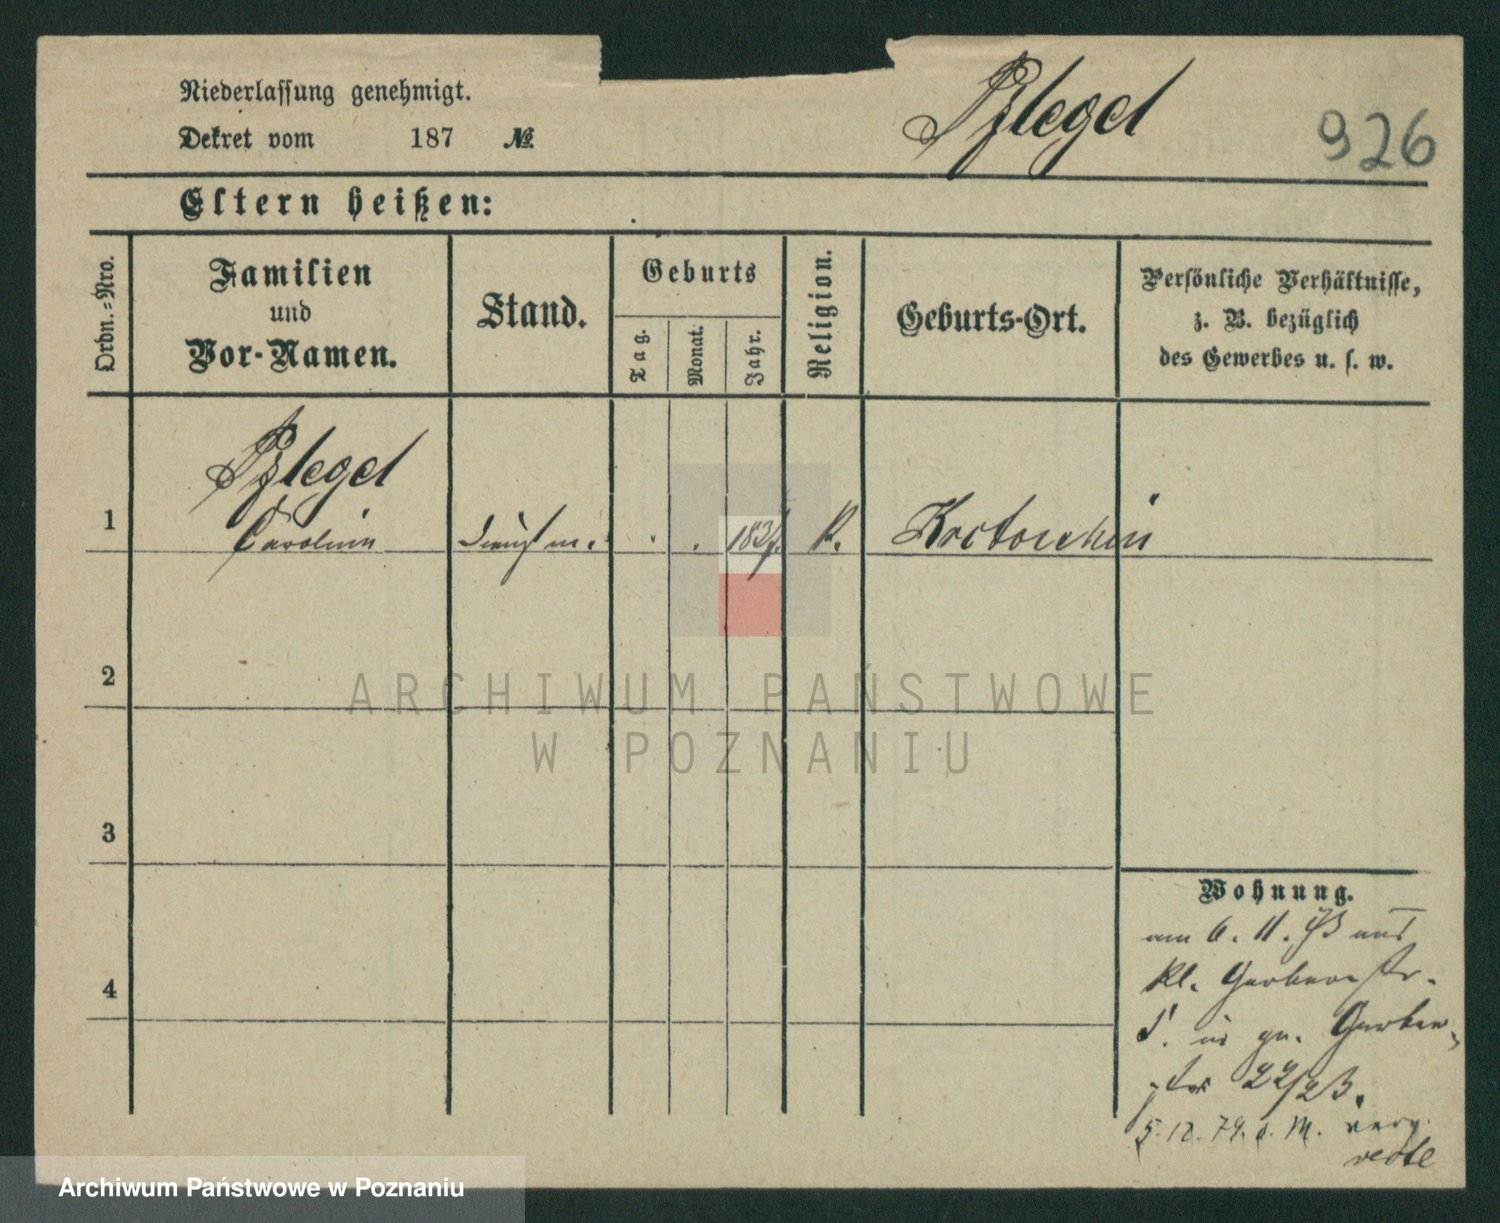 Niederlassung genehmigt.
Dekret vom 187 №
Pflegel
926
Eltern heißen:
Ordn.=Nro.
Familien
und
Vor-Namen.
Stand.
Geburts
Tag.
Monat.
Jahr.
Religion.
Geburts-Ort.
Persönliche Verhältnisse,
z. B. bezüglich
des Gewerbes u. s. w.
Pflegel
1 Carolin Dienstm. 183 k. Krotoschin
2
3
4
Wohnung.
am 6. 11. 73 aus
kl. Gerberstr.
in gr. Gerber-
str 22/23.
5. 12. 74. o. M. verz.
ARCHIWUM PAŃSTWOWE
W POZNANIU
Archiwum Państwowe w Poznaniu